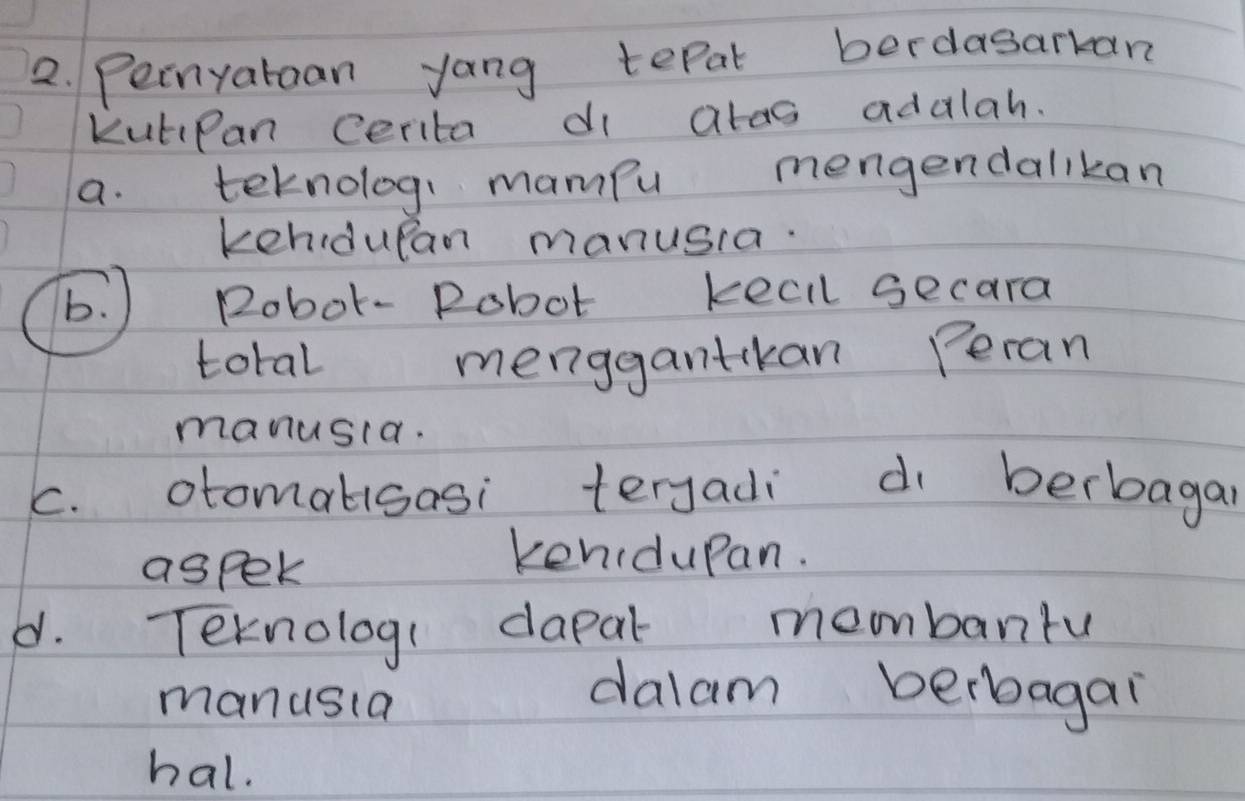 2. Pernyataan yang tepat berdasarkan
kutipan cerita di atas adalah.
a. teknologi mampu mengendalikan
kehidupan manusia.
b. Robot-Robot kecil secara
total menggantikan Peran
manusia.
c. otomatisasi terjadi di berbagai
aspek kehidupan.
d. Teknologi dapat membantu
manusia dalam berbagai
hal.